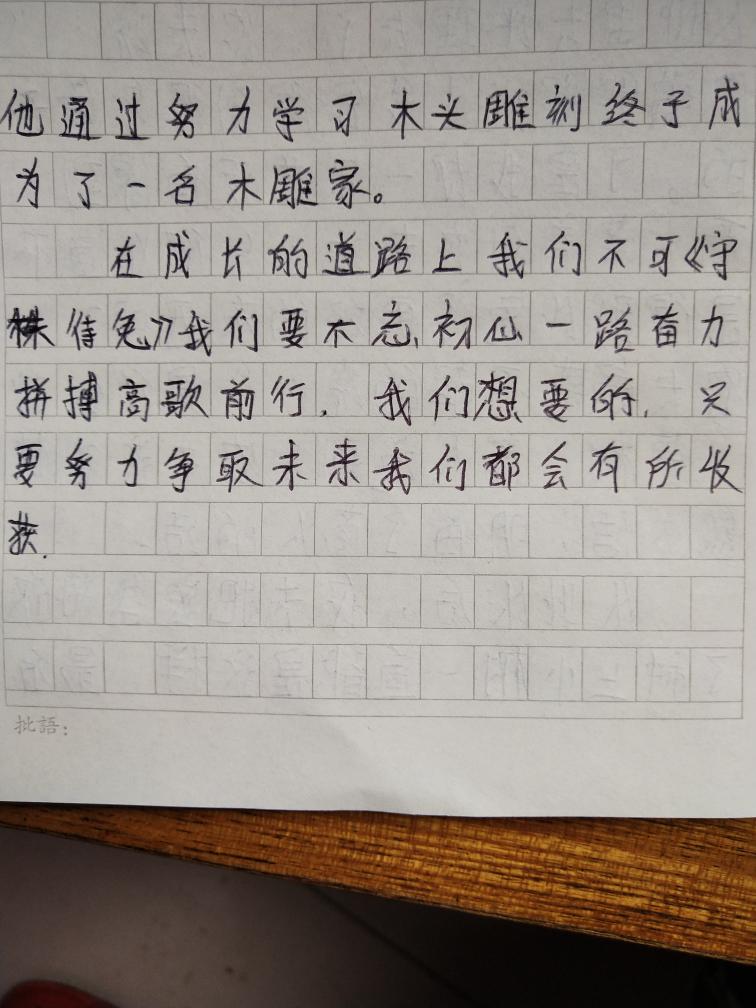 他通过努力学习木头雕刻终于成
为了一名木雕家。
在成长的道路上我们不可《守
株待兔》我们要不忘初心一路奋力
拼搏高歌前行．我们想要的．只
要努力争取未来我们都会有所收
获．
批語：